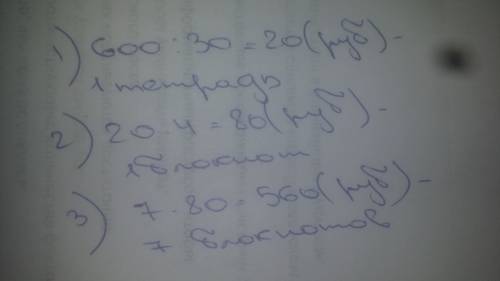 1) 600 : 30 = 20 (руб) -
1 тетрадь
2) 20 · 4 = 80 (руб) -
1 блокнот
3) 7 · 80 = 560 (руб) -
7 блокнотов